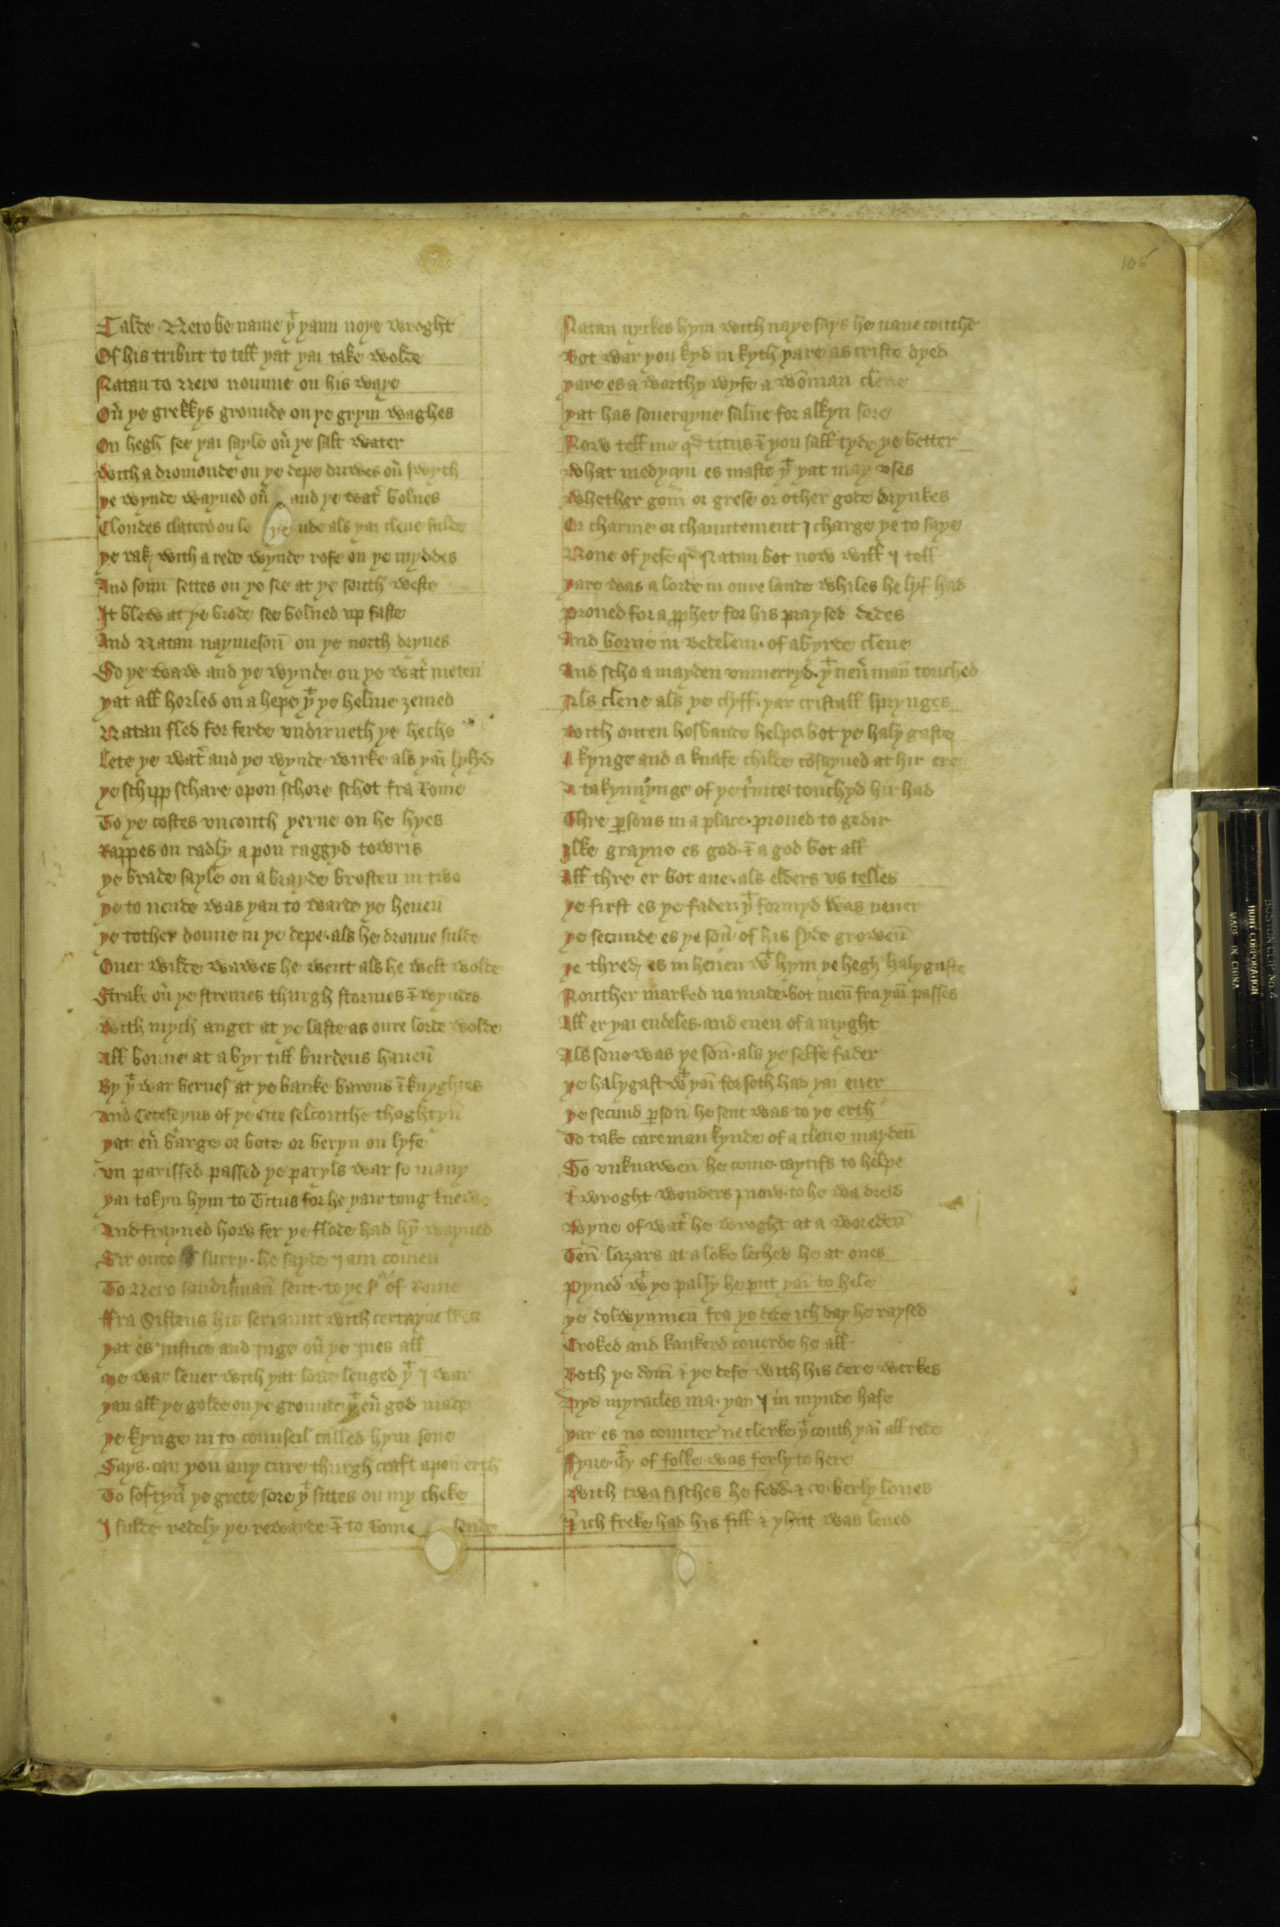 105
Calde Nero be name yt yam noye wroght
Of his tribut to tell yat yai take wolde
Natan to Nero nomme on his waye
Ou' ye grekkys grounde on ye grym waghes
On hegh see yai sayle ou' ye salt water
With a dromonde on ye depe dryves ou' swyth
ye wynde wayued ou' and ye wat' bolnes
Cloudes clatерd on lo ye nde als yai cleue sulde
ye rak with a rede wynde rose on ye myddes
And sonn settes on ye see at ye south weste
It blew at ye brode see bolned vp faste
And Natan naymeson on ye north dryues
So ye waw and ye wynde on ye wat' meten
yat all horled on a hepe yt ye helme zemed
Natan fled for ferde vndirneth ye heche
Lete ye wat' and ye wynde wirke als yai lykyd
ye schipp schare opon schore schot fra Rome
To ye costes vncouth yerne on he hyes
Rappes on radly apon raggyd towris
ye brade sayle on a brayde brosten in two
ye to nende was yan to warde ye heuen
ye tother donne in ye depe als he droune sulde
Ouer wilde wawes he went als he welt wolde
Strake ou' ye stremes thurgh stormes & wyndes
With mych anger at ye laste as oure lorde wolde
All bonne at a byr till burdeus hauen
By yt war bernes at ye banke barons & knyghtes
And Cetesyns of ye Cite selcouthe thoghtyn
yat eu' barge or bote or beryn on lyfe
vn parissed passed ye paryls war so many
yai tokyn hym to Titus for he yair tong knew
And frayned how fer ye flode had hym wayued
Sir oute surry he sayde I am comen
To Nero sent to ye of Rome
ffra Sistens his seriaunt with certayne
yat es iustice and iuge ou' ye iues all
Me war leuer with yat lorde lenged yt I war
yan all ye golde on ye grounde yt eu' god made
ye kynge in to counseil called hym sone
Says can you any cure thurgh craft apon erth
To softyn ye grete sore yt sittes on my cheke
I sulde redely ye rewarde & to Rome sende
Natan nyckes hym with naye says he nane couthe
Bot war you kyd in kyth yare as criste dyed
yare es a worthy wyfe a woman clene
yat has souerayne salue for alkyn sore
Now tell me qd titus & you sall tyde ye better
What medycyn es maste yt yat may vses
Whether gom or grese or other gode drynkes
Or charme or chauntement I charge ye to saye
None of yese qd Natan bot now will I tell
yare was a lorde in oure lande whiles he lyf had
Proued for a pphet for his praysed dedes
And borne in Bedelem of a byrde clene
And scho a mayden vnmerryd yt neu' man touched
Als clene als ye clyff yar cristall sprynges
With outen hosbande helpe bot ye haly gaste
A kynge and a knafe childe cosayued at hir ere
A takynnynge of ye t'nite touchyd hir had
Thre psons in a place proued to gedir
Ilke grayne es god & a god bot all
All thre er bot ane als elders vs telles
ye first es ye fader yt formyd was neuer
ye secunde es ye son of his syde growen
ye thred es in heuen wt hym ye hegh halygaste
Nouther marked no made bot men fra yai passes
All er yai endeles and euen of a myght
Als sone was ye son als ye selfe fader
ye halygast wt yai for soth had yai euer
ye secund pson he sent was to ye erth
To take care man kynde of a clene mayden
To vnknawen he come caytifs to helpe
& wroght wonders ynow to he wa dreid
Wyne of wat' he wroght at a worde
Ten lazars at a loke leched he at ones
Pyned wt ye palsy he putt yai to hele
ye dolwynmen fra ye dede ich day he raysed
Croked and kankerd couerde he all
Both ye dom & ye defe with his dere werkes
Dyd myracles ma yan I in mynde hafe
yar es no counter ne clerke yt couth yai all rede
ffyue of folke was ferly to here
With twa fisches he fedd & v berly loues
Ich freke had his fill & yhitt was leued
BOSTON CLIP No.4
HUNT CORPORATION
MADE IN CHINA